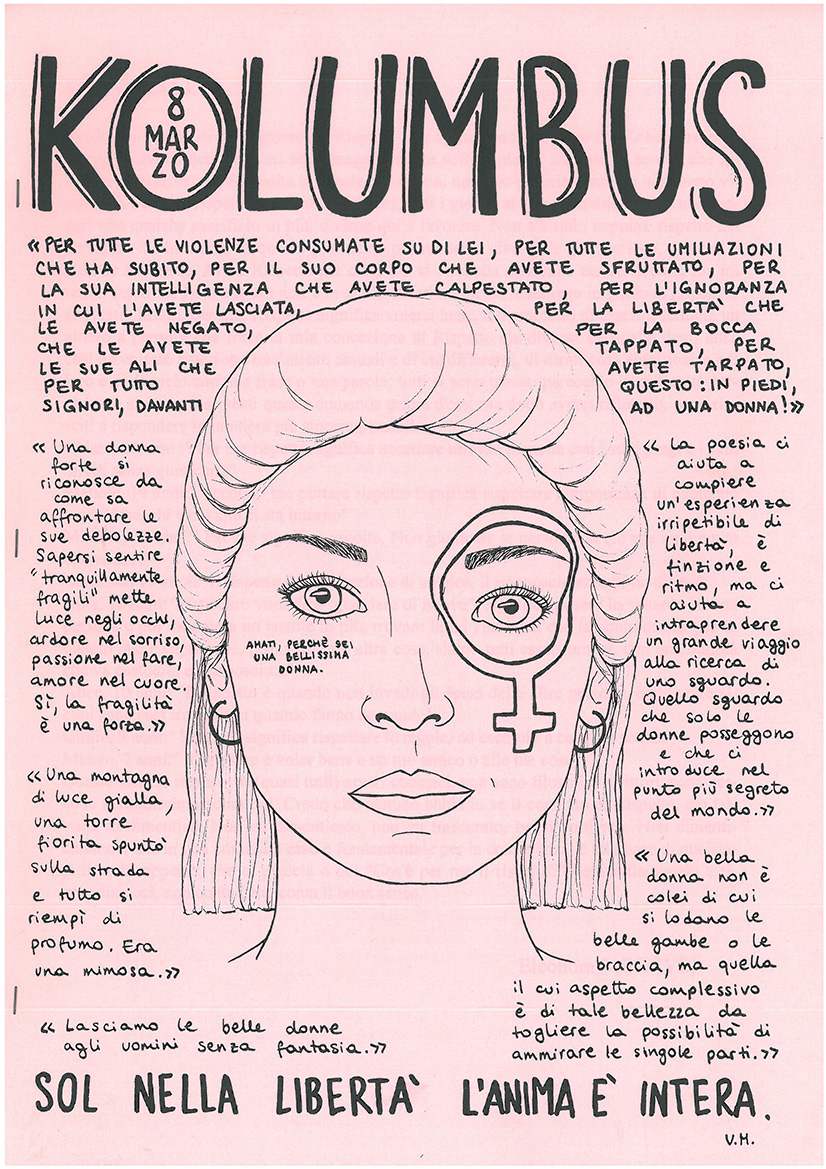 KOLUMBUS
8
MAR
ZO
«PER TUTTE LE VIOLENZE CONSUMATE SU DI LEI, PER TUTTE LE UMILIAZIONI
CHE HA SUBITO, PER IL SUO CORPO CHE AVETE SFRUTTATO, PER
LA SUA INTELLIGENZA CHE AVETE CALPESTATO, PER L'IGNORANZA
IN CUI L'AVETE LASCIATA, PER LA LIBERTA' CHE
LE AVETE NEGATO, PER LA BOCCA
CHE LE AVETE TAPPATO, PER
LE SUE ALI CHE AVETE TARPATO,
PER TUTTO QUESTO: IN PIEDI,
SIGNORI, DAVANTI AD UNA DONNA!»
«Una donna
forte si
riconosce da
come sa
affrontare le
sue debolezze.
Sapersi sentire
"tranquillamente
fragili" mette
luce negli occhi,
ardore nel sorriso,
passione nel fare,
amore nel cuore.
Sì, la fragilità
è una forza.»
«Una montagna
di luce gialla,
una torre
fiorita spuntò
sulla strada
e tutto si
riempì di
profumo. Era
una mimosa.»
«Lasciamo le belle donne
agli uomini senza fantasia.»
AMATI, PERCHÈ SEI
UNA BELLISSIMA
DONNA.
«La poesia ci
aiuta a
compiere
un'esperienza
irripetibile di
libertà, è
finzione e
ritmo, ma ci
aiuta a
intraprendere
un grande viaggio
alla ricerca di
uno sguardo.
Quello sguardo
che solo le
donne posseggono
e che ci
introduce nel
punto più segreto
del mondo.»
«Una bella
donna non è
colei di cui
si lodano le
belle gambe o le
braccia, ma quella
il cui aspetto complessivo
è di tale bellezza da
togliere la possibilità di
ammirare le singole parti.»
SOL NELLA LIBERTA' L'ANIMA E' INTERA.
V.M.